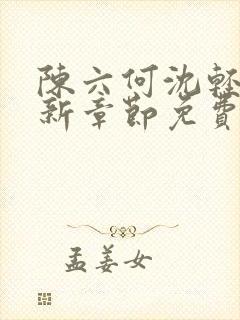 陳六何沈輕
新章節免費
孟姜女